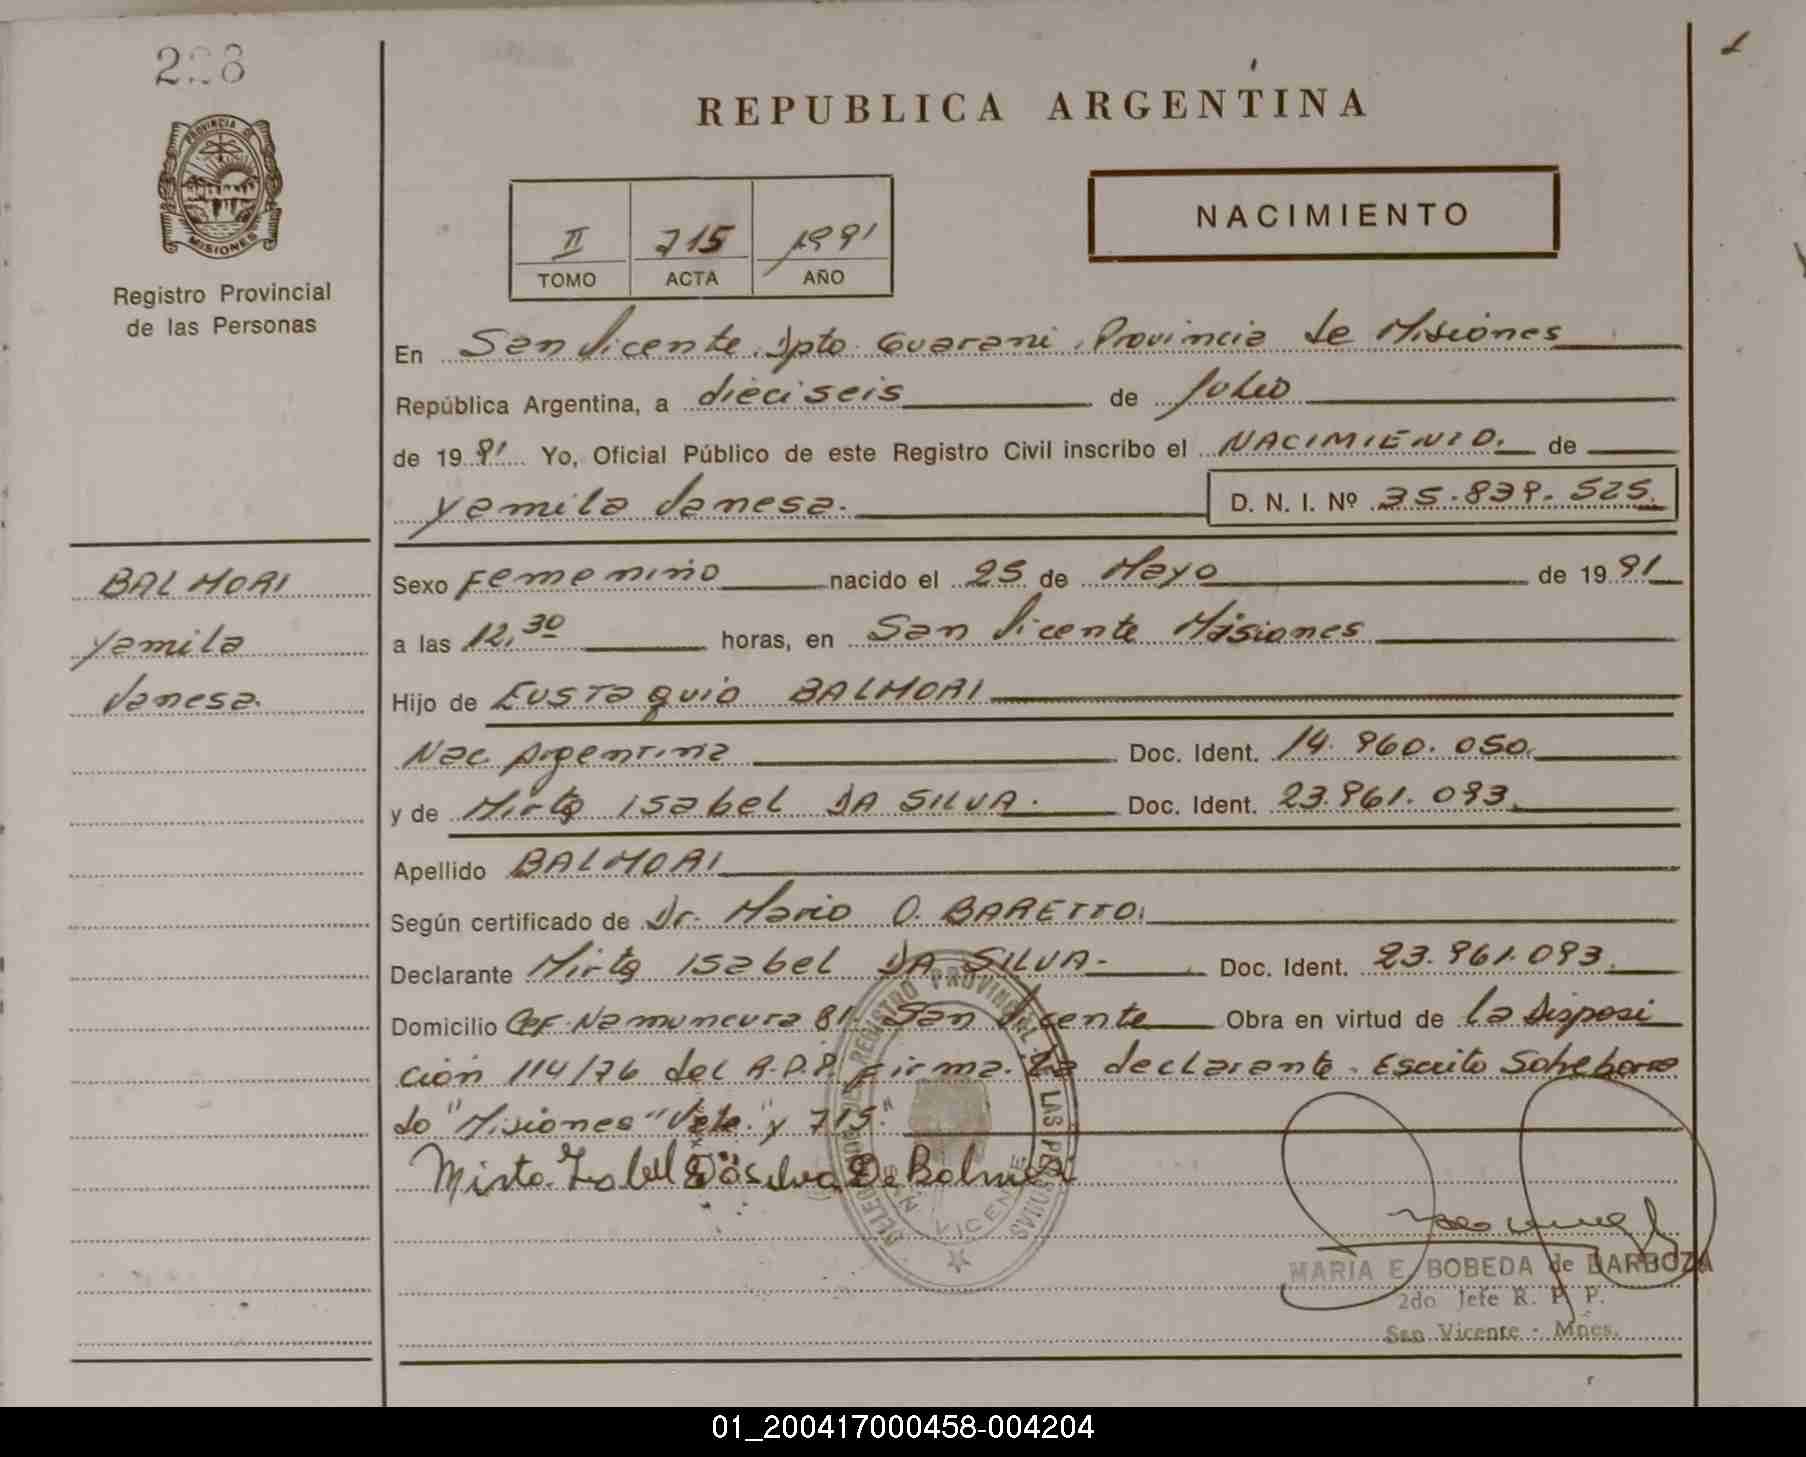 PROVINCIA DE
MISIONES
Registro Provincial
de las Personas
BALMORI
Yamila
Vanesa.
REPUBLICA ARGENTINA
II 715 1991
TOMO ACTA AÑO
NACIMIENTO
En San Vicente, Dpto. Guarani, Provincia de Misiones
República Argentina, a dieciseis de Julio
de 1991 Yo, Oficial Público de este Registro Civil inscribo el NACIMIENTO. de
Yamila Vanesa. D. N. I. Nº 35.839.525.
Sexo Femenino nacido el 25 de Mayo de 1991
a las 12,30 horas, en San Vicente Misiones
Hijo de Eustaquio BALMORI
Nac. Argentina Doc. Ident. 14.960.050.
y de Mirta Isabel DA SILVA. Doc. Ident. 23.961.093.
Apellido BALMORI
Según certificado de Dr. Mario O. BARETTO.
Declarante Mirta Isabel DA SILVA- Doc. Ident. 23.961.093.
Domicilio Cef. Namuncura 81. San Vicente Obra en virtud de la Disposi
ción 114/76 del R.P.P. Firma: La declarante. Escrito Sobreborra
do "Misiones" Vale." y 715."
REGISTRO PROVINCIAL DE LAS PERSONAS
VICENTE
MARIA E. BOBEDA de BARBOZA
2do Jefe R. P. P.
San Vicente - Mnes.
01_200417000458-004204